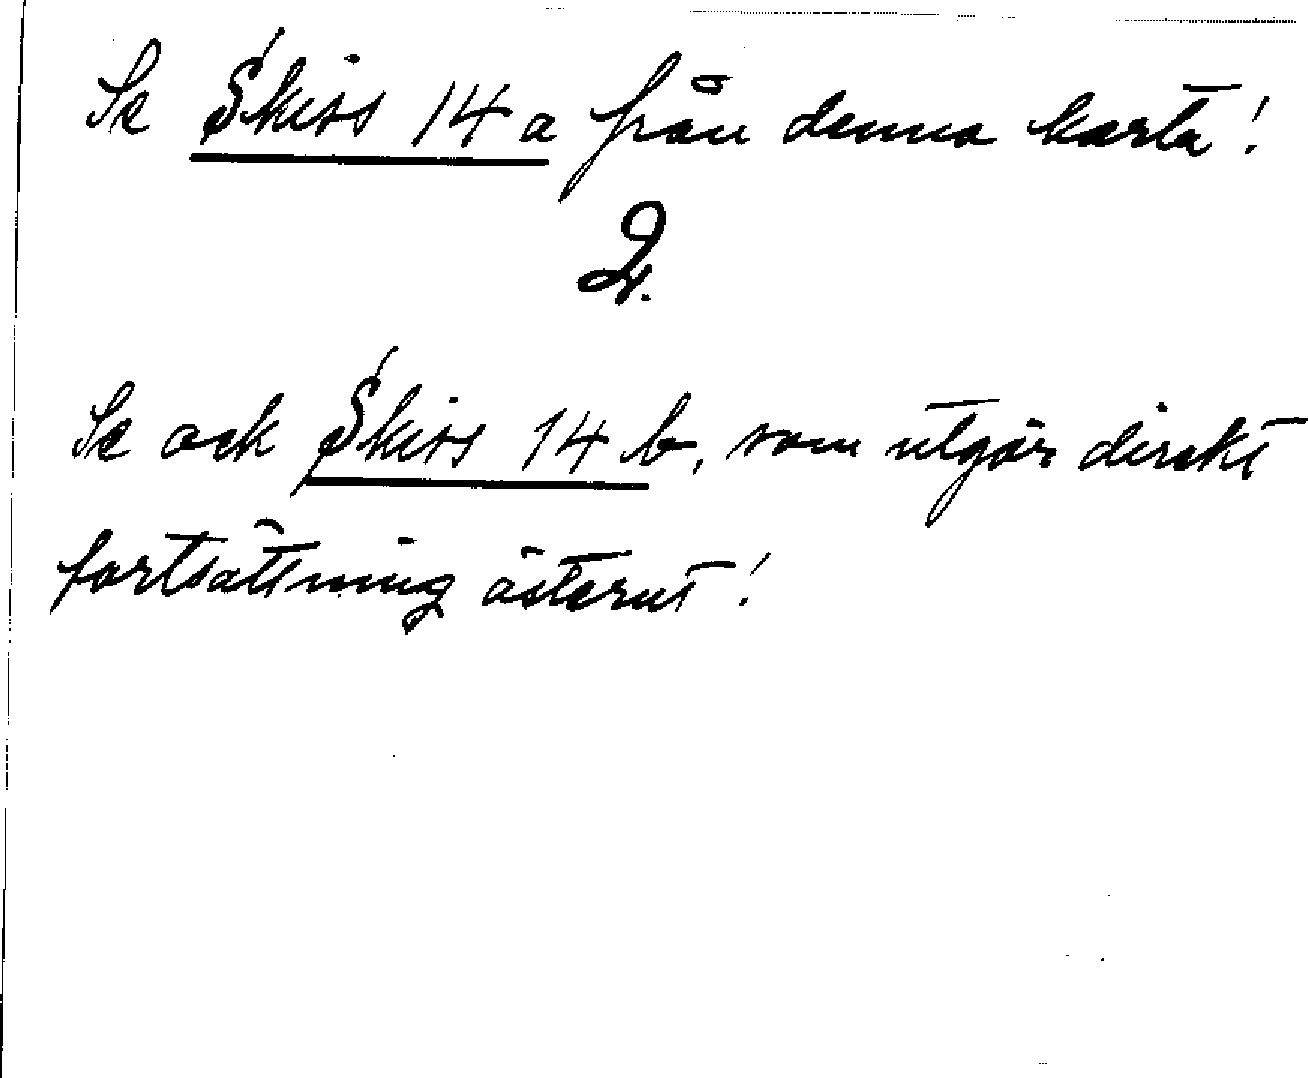 Se Skiss 14 a från denna karta!
2.
Se ock Skiss 14 b, som utgör direkt
fortsättning österut!